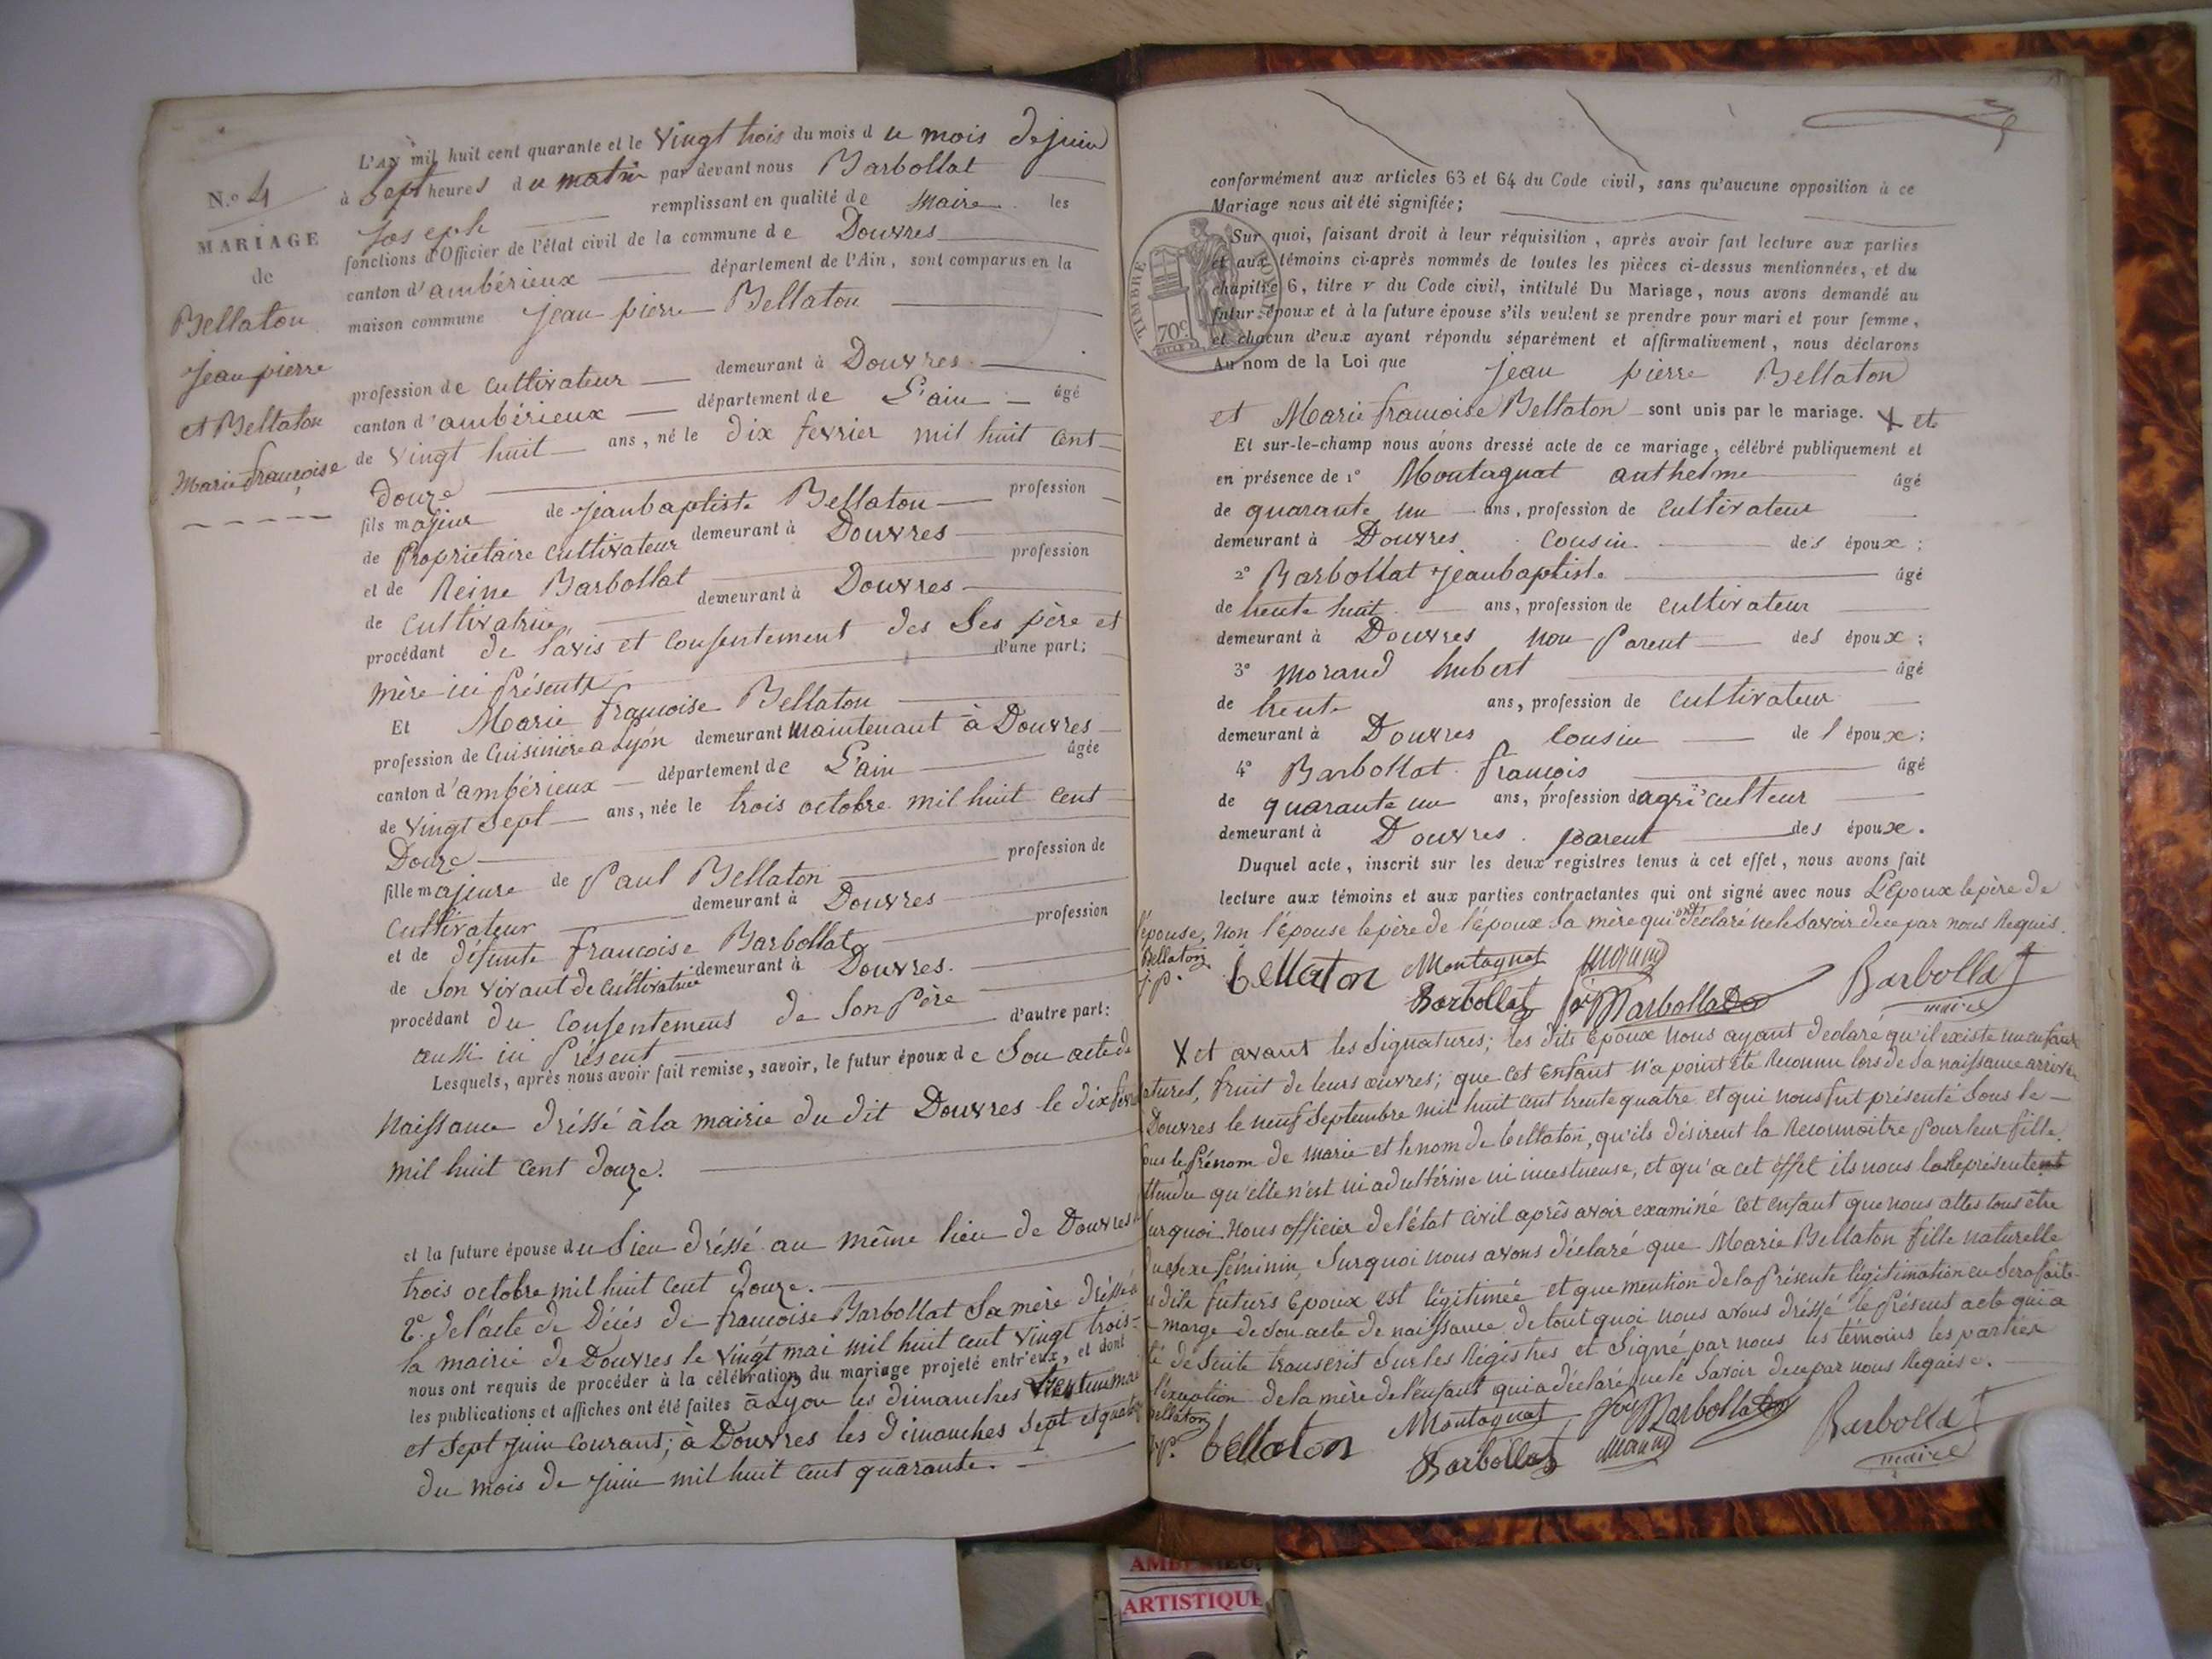 N.º 4
MARIAGE
de
Bellaton
Jean pierre
et Bellaton
Marie françoise
L'AN mil huit cent quarante et le Vingt trois du mois du mois de juin
à Sept heures du matin par devant nous Barbollat
Joseph remplissant en qualité de Maire les
fonctions d'Officier de l'état civil de la commune de Douvres
canton d'ambérieux département de l'Ain, sont comparus en la
maison commune Jean pierre Bellaton
profession de Cultivateur demeurant à Douvres
canton d'ambérieux département de L'ain âgé
de Vingt huit ans, né le dix fevrier mil huit Cent
Douze
fils majeur de Jeanbaptiste Bellaton profession
de Propriétaire Cultivateur demeurant à Douvres
et de Reine Barbollat profession
de Cultivatrice demeurant à Douvres
procédant de l'avis et Consentement des Ses père et
mère ici Présents d'une part;
Et Marie françoise Bellaton
profession de Cuisinière a Lyon demeurant maintenant à Douvres
canton d'ambérieux département de L'ain âgée
de Vingt Sept ans, née le trois octobre mil huit Cent
Douze
fille majeure de Paul Bellaton profession de
Cultivateur demeurant à Douvres
et de défunte françoise Barbollat profession
de Son Vivant de Cultivatrice demeurant à Douvres.
procédant du Consentement de Son Père
aussi ici Présent d'autre part:
Lesquels, après nous avoir fait remise, savoir, le futur époux de Son acte de
Naissance dréssé à la mairie du dit Douvres le dix fevr
mil huit Cent Douze.
et la future épouse du Sien dréssé au même lieu de Douvres
trois octobre mil huit Cent Douze.
2º de l'acte de Décés de françoise Barbollat Sa mère dréssé
la mairie de Douvres le Vingt mai mil huit Cent Vingt trois
nous ont requis de procéder à la célébration du mariage projeté entr'eux, et dont
les publications et affiches ont été faites à Lyon les dimanches mai
et Sept Juin Courant; à Douvres les dimanches Sept et quat
du mois de Juin mil huit Cent quarante.
conformément aux articles 63 et 64 du Code civil, sans qu'aucune opposition à ce
Mariage nous ait été signifiée;
TIMBRE ROYAL
70c
Sur quoi, faisant droit à leur réquisition, après avoir fait lecture aux parties
et aux témoins ci-après nommés de toutes les pièces ci-dessus mentionnées, et du
chapitre 6, titre v du Code civil, intitulé Du Mariage, nous avons demandé au
futur époux et à la future épouse s'ils veulent se prendre pour mari et pour femme,
et chacun d'eux ayant répondu séparément et affirmativement, nous déclarons
Au nom de la Loi que Jean pierre Bellaton
et Marie françoise Bellaton sont unis par le mariage. X et
Et sur-le-champ nous avons dressé acte de ce mariage, célébré publiquement et
en présence de 1º Montagnat anthelme âgé
de quarante un ans, profession de Cultivateur
demeurant à Douvres Cousin des époux;
2º Barbollat Jeanbaptiste âgé
de trente huit ans, profession de Cultivateur
demeurant à Douvres non Parent des époux;
3º Morand hubert âgé
de trente ans, profession de Cultivateur
demeurant à Douvres Cousin de l époux;
4º Barbollat françois âgé
de quarante un ans, profession d'agriculteur
demeurant à Douvres. parent des époux.
Duquel acte, inscrit sur les deux registres tenus à cet effet, nous avons fait
lecture aux témoins et aux parties contractantes qui ont signé avec nous L'Epoux le père de
l'épouse, Non l'épouse le père de l'époux Sa mère qui ont déclaré ne le Savoir de ce par nous Requis.
Bellaton
j. p. bellaton Montagnat Morand
Barbollat Barbollat Barbollat
maire
X et avant les Signatures; les dits Epoux Nous ayant déclaré qu'il existe un enfant
atures, fruit de leurs œuvres; que Cet Enfant n'a point été Reconnu lors de Sa naissance arrivée
Douvres le neuf Septembre mil huit Cent trente quatre et qui nous fut présenté Sous le
ous le Prénom de Marie et le nom de bellaton, qu'ils désirent la Reconnoitre Pour leur fille.
ttendu qu'elle n'est ni adultérine ni incestueuse, et qu'a cet effet ils nous la Représentent
urquoi Nous officier de l'état Civil après avoir examiné Cet enfant que nous attestons être
du Sexe féminin, Surquoi nous avons déclaré que Marie Bellaton fille naturelle
dits futurs Epoux est légitimée et que mention de la Présente légitimation en Sera faite
marge de Son acte de naissance de tout quoi nous avons dréssé le Présent acte qui a
té de Suite transcrit Sur les Régistres et Signé par nous les témoins les parties
l'exception de la mère de l'enfant qui a déclaré ne le Savoir de ce par nous Requise.
bellaton
j. p. bellaton Montagnat Barbollat
Barbollat Morand Barbollat
maire
ARTISTIQUE